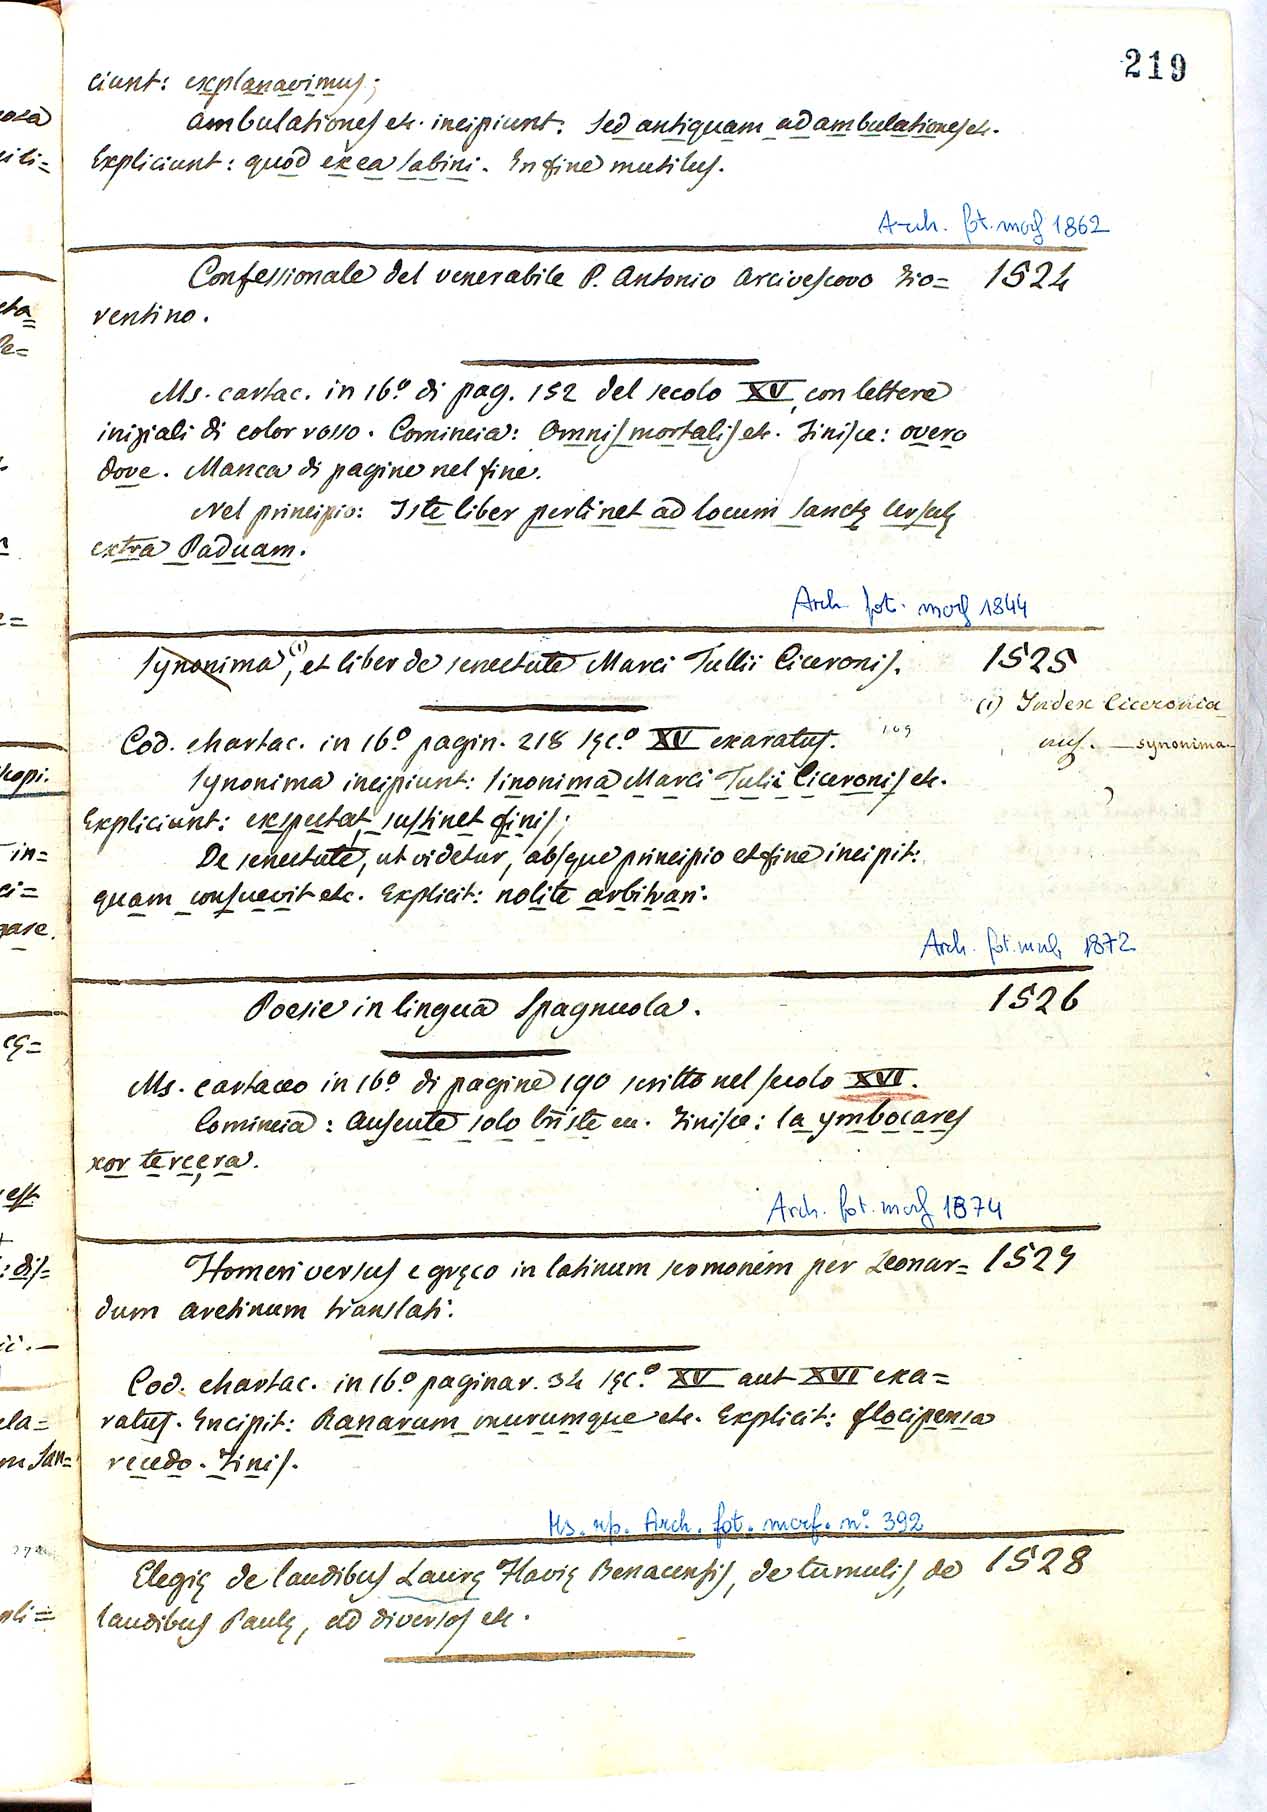 219
ciunt: explanavimus;
Ambulationes etc. incipiunt: Sed antiquam ad ambulationes etc.
Expliciunt: quod ex ea sabini. In fine mutilus.
Arch. fot. morf 1862
Confessionale del venerabile P. Antonio Arcivescovo Fio= 1524
rentino.
Ms. cartac. in 16.º di pag. 152 del secolo XV, con lettere
iniziali di color rosso. Comincia: Omnis mortalis etc. Finisce: overo
dove. Manca di pagine nel fine.
Nel principio: Iste liber pertinet ad locum sanctę Ursulę
extra Paduam.
Arch. fot. morf 1844
Synonima, (1) et liber de senectute Marci Tullii Ciceronis. 1525
(1) Index Ciceronia
nus. — synonima —
Cod. chartac. in 16.º pagin. 218 sęc.º XV exaratus. 109
Synonima incipiunt: Sinonima Marci Tulii Ciceronis etc.
Expliciunt: expectat, sustinet finis;
De senectute, ut videtur, absque principio et fine incipit:
quam consuevit etc. Explicit: nolite arbitrari.
Arch. fot. morf 1872
Poesie in lingua Spagnuola. 1526
Ms. cartaceo in 16.º di pagine 190 scritto nel secolo XVI.
Comincia: Ausente solo triste ec. Finisce: la ymbocares
xor tercera.
Arch. fot. morf 1874
Homeri versus e gręco in latinum sermonem per Leonar= 1527
dum Aretinum translati.
Cod. chartac. in 16.º paginar. 34 sęc.º XV aut XVI exa=
ratus. Incipit: Ranarum murumque etc. Explicit: flocipensa
recedo. Finis.
Ms. rip. Arch. fot. morf. n.º 392
Elegię de laudibus Laurę Flavię Benacensis, de tumulis, de 1528
laudibus Paulę, ad diversos etc.